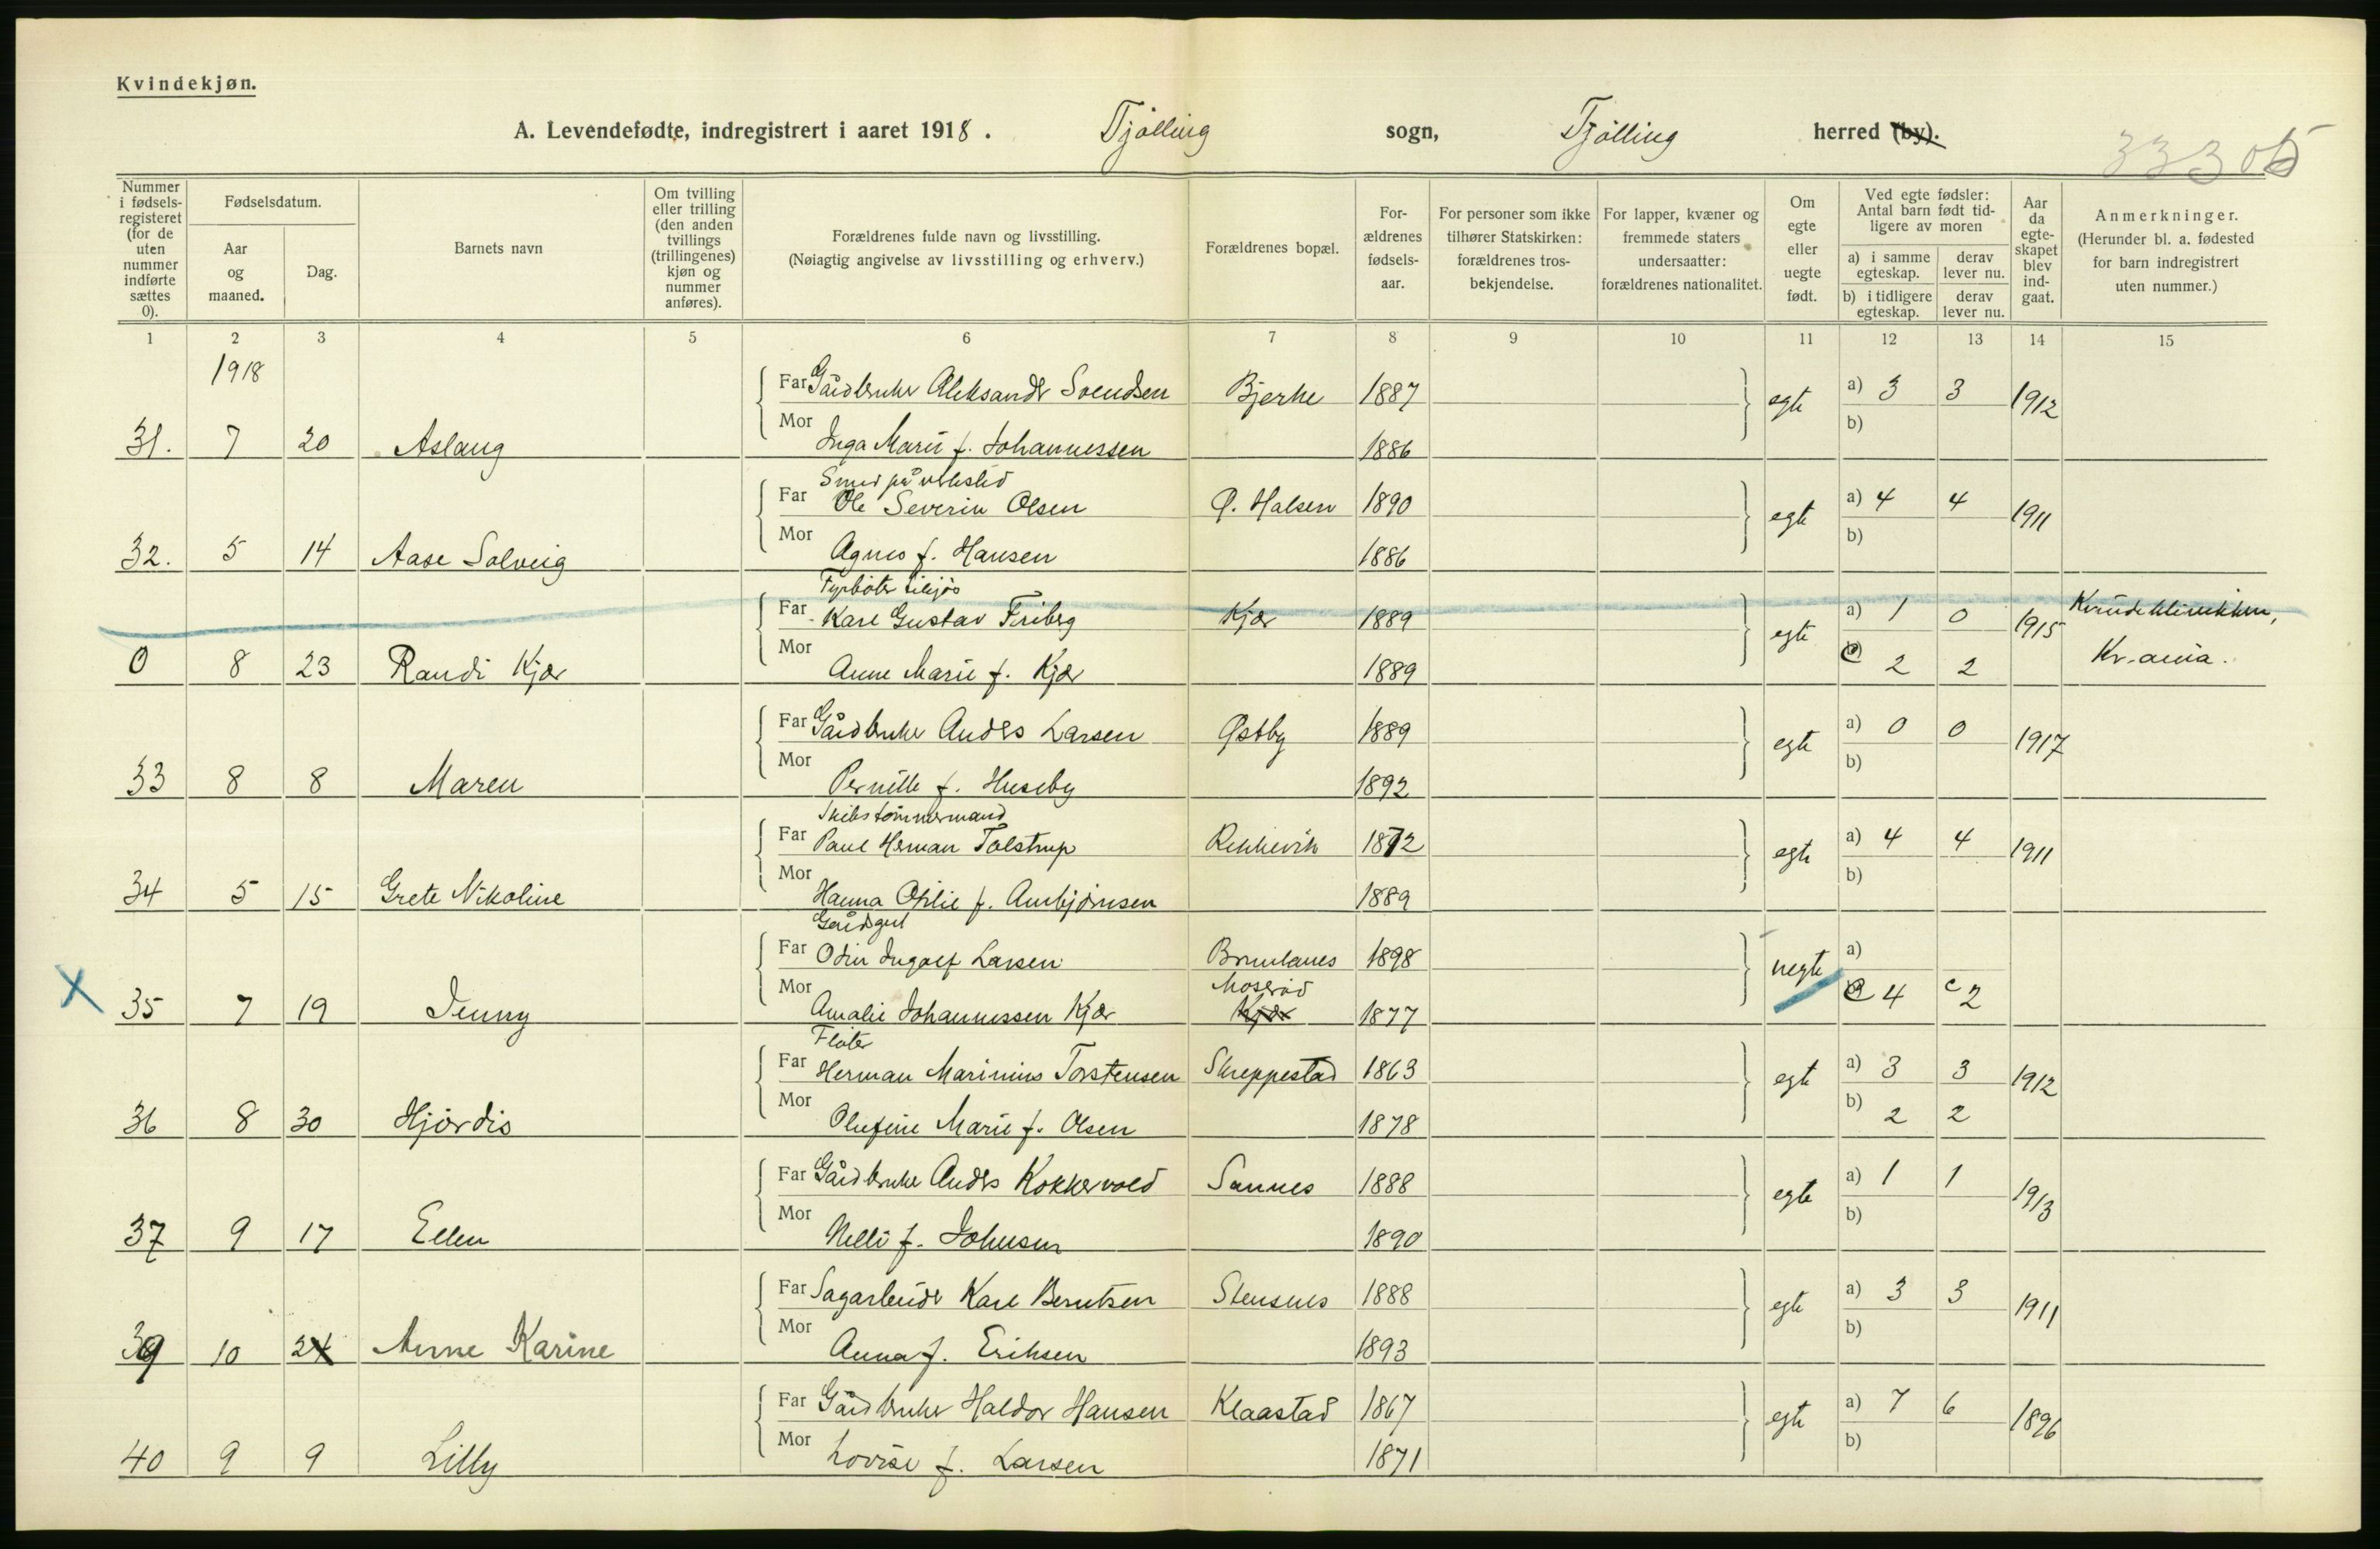 Kvindekjøn.
A. Levendefødte, indregistrert i aaret 1918. Tjølling sogn, Tjølling herred (by).
Nummer i fødsels-registeret (for de uten nummer indførte sættes 0).
Fødselsdatum.
Aar og maaned.
Dag.
Barnets navn
Om tvilling eller trilling (den anden tvillings (trillingenes) kjøn og nummer anføres).
Forældrenes fulde navn og livsstilling.
(Nøiagtig angivelse av livsstilling og erhverv.)
Forældrenes bopæl.
For-ældrenes fødsels-aar.
For personer som ikke tilhører Statskirken: forældrenes tros-bekjendelse.
For lapper, kvæner og fremmede staters undersaatter: forældrenes nationalitet.
Om egte eller uegte født.
Ved egte fødsler: Antal barn født tid-ligere av moren
a) i samme egteskap. derav lever nu.
b) i tidligere egteskap. derav lever nu.
Aar da egte-skapet blev ind-gaat.
Anmerkninger.
(Herunder bl. a. fødested for barn indregistrert uten nummer.)
1 2 3 4 5 6 7 8 9 10 11 12 13 14 15
1918
Far Gårdbruker Aleksander Svendsen Bjerke 1887 egte a) 3 3 1912
31. 7 20 Aslaug Mor Inga Marie f. Johannessen 1886 b)
Smed på verksted
Far Ole Severin Olsen Ø. Halsen 1890 egte a) 4 4 1911
32. 5 14 Aase Solveig Mor Agnes f. Hansen 1886 b)
Fyrbøter tilsjøs
Far Karl Gustav Friberg Kjær 1889 egte a) 1 0 1915 Kvindeklinikken,
0 8 23 Randi Kjær Mor Anne Marie f. Kjær 1889 2 2 Kr.ania.
Far Gårdbruker Anders Larsen Østby 1889 egte a) 0 0 1917
33 8 8 Maren Mor Pernille f. Huseby 1892 b)
Skibstømmermand
Far Paul Herman Tolstrup Rekkevik 1872 egte a) 4 4 1911
34 5 15 Grete Nikoline Mor Hanna Otilie f. Arnbjørnsen 1889 b)
Gårdsgut
Far Odin Ingolf Larsen Brunlanes 1898 uegte a)
Moserød
35 7 19 Jenny Mor Amalie Johannessen Kjær Kjær 1877 c 4 c 2
Fløter
Far Herman Marinius Torstensen Skreppestad 1863 egte a) 3 3 1912
36 8 30 Hjørdis Mor Olufine Marie f. Olsen 1878 b) 2 2
Far Gårdbruker Anders Kokkersvold Sannes 1888 egte a) 1 1 1913
37 9 17 Ellen Mor Nelli f. Johnsen 1890 b)
Far Sagarbeider Karl Berntsen Stensnes 1888 egte a) 3 3 1911
39 10 24 Anne Karine Mor Anna f. Eriksen 1893 b)
Far Gårdbruker Haldor Hansen Klaastad 1867 egte a) 7 6 1896
40 9 9 Lilly Mor Lovise f. Larsen 1871 b)